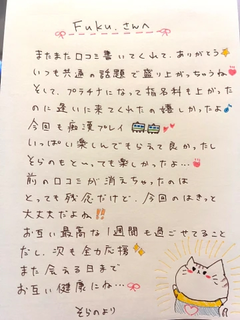 Fuku.さんへ
またまた口コミ書いてくれて、ありがとう
いつも共通の話題で盛り上がっちゃうね
そして、プラチナになって指名料も上がった
のに逢いに来てくれたの嬉しかったよ
今回も痴漢プレイ
いっぱい楽しんでもらえて良かったし
そらのもとーっても楽しかったよ…
前の口コミが消えちゃったのは
とっても残念だけど、今回のはきっと
大丈夫だよね!!
お互い最高な1週間も過ごせてること
だし、次も全力応援
また会える日まで
お互い健康にね…
そらのより